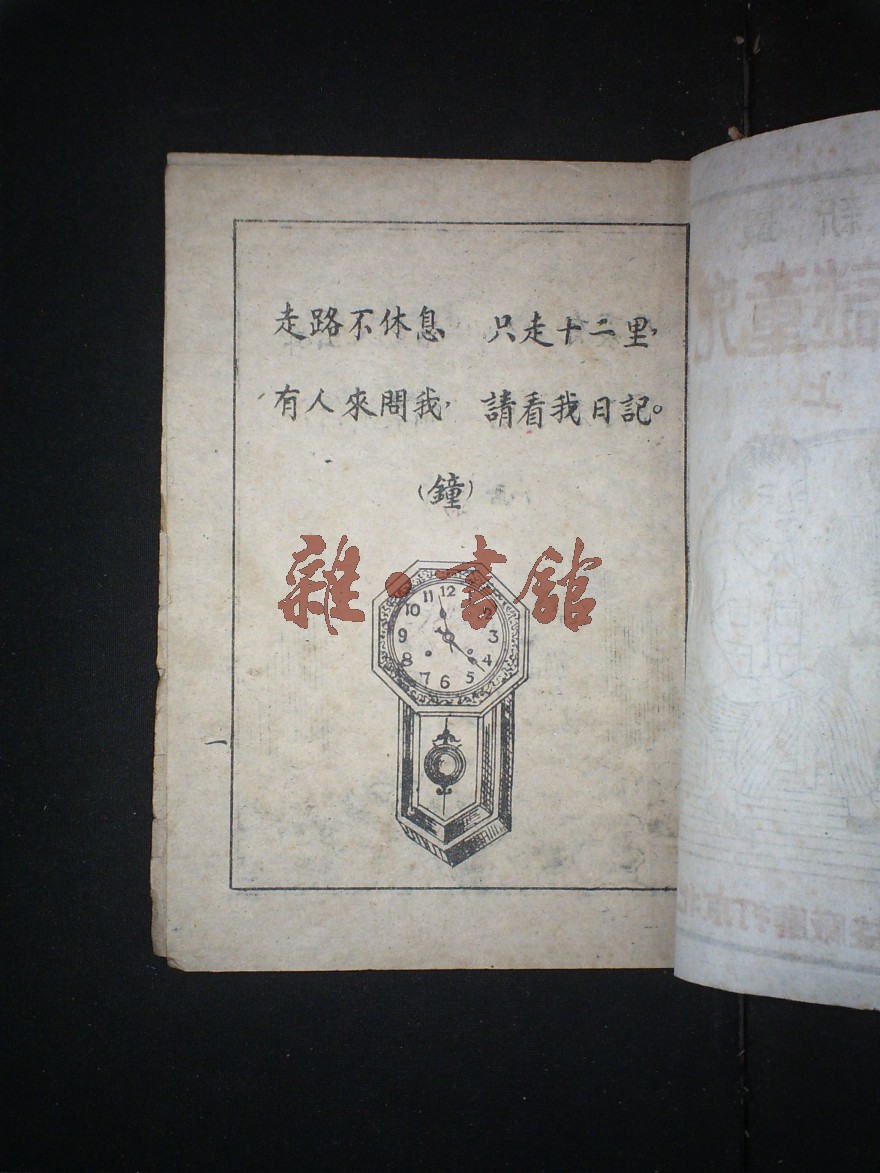 走路不休息，只走十二里，
有人來問我，請看我日記。
（鐘）
雜·書館
11 12
10 2
9 3
8 4
7 6 5
一
新
童
上